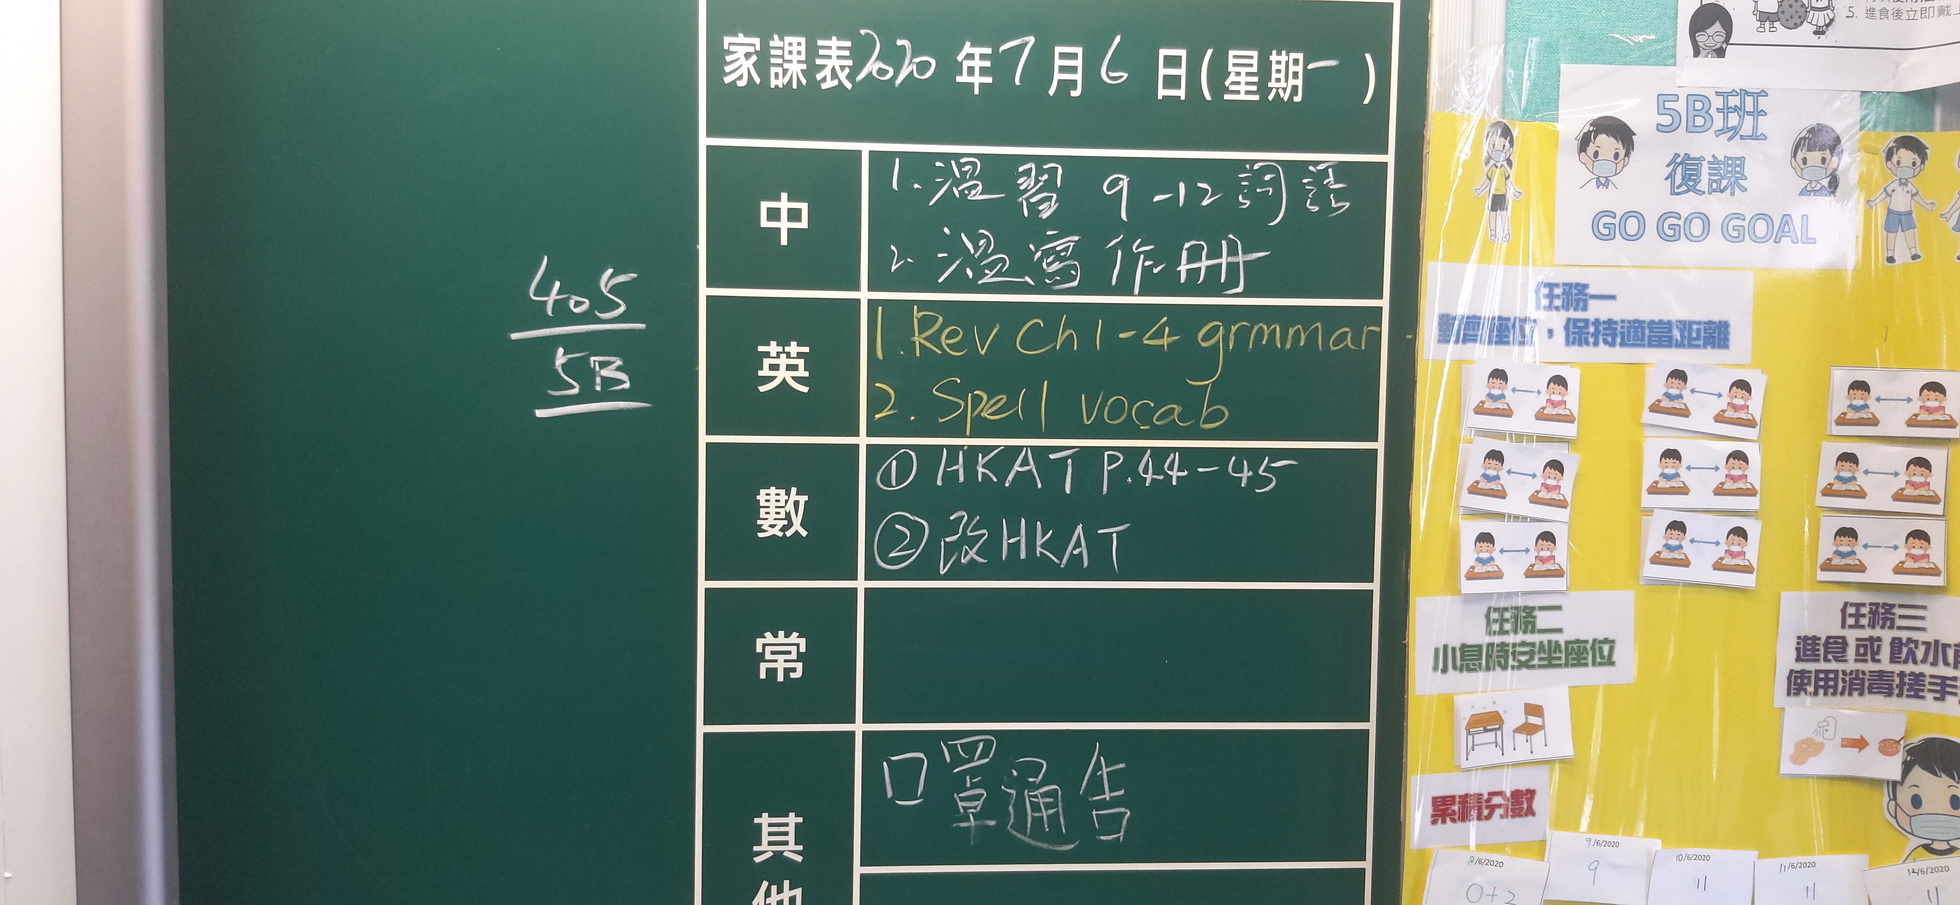 家課表2020年7月6日(星期一)
中
1. 溫習 9-12 詞語
2. 溫寫作冊
英
1. Rev Ch 1-4 grmmar
2. Spell vocab
數
① HKAT P.44-45
② 改HKAT
常
其他
口罩通告
405
5B
5. 進食後立即戴上
5B班
復課
GO GO GOAL
任務一
對齊座位，保持適當距離
任務二
小息時安坐座位
任務三
進食或飲水前
使用消毒搓手
累積分數
8/6/2020
0+2
9/6/2020
9
10/6/2020
11
11/6/2020
11
12/6/2020
11